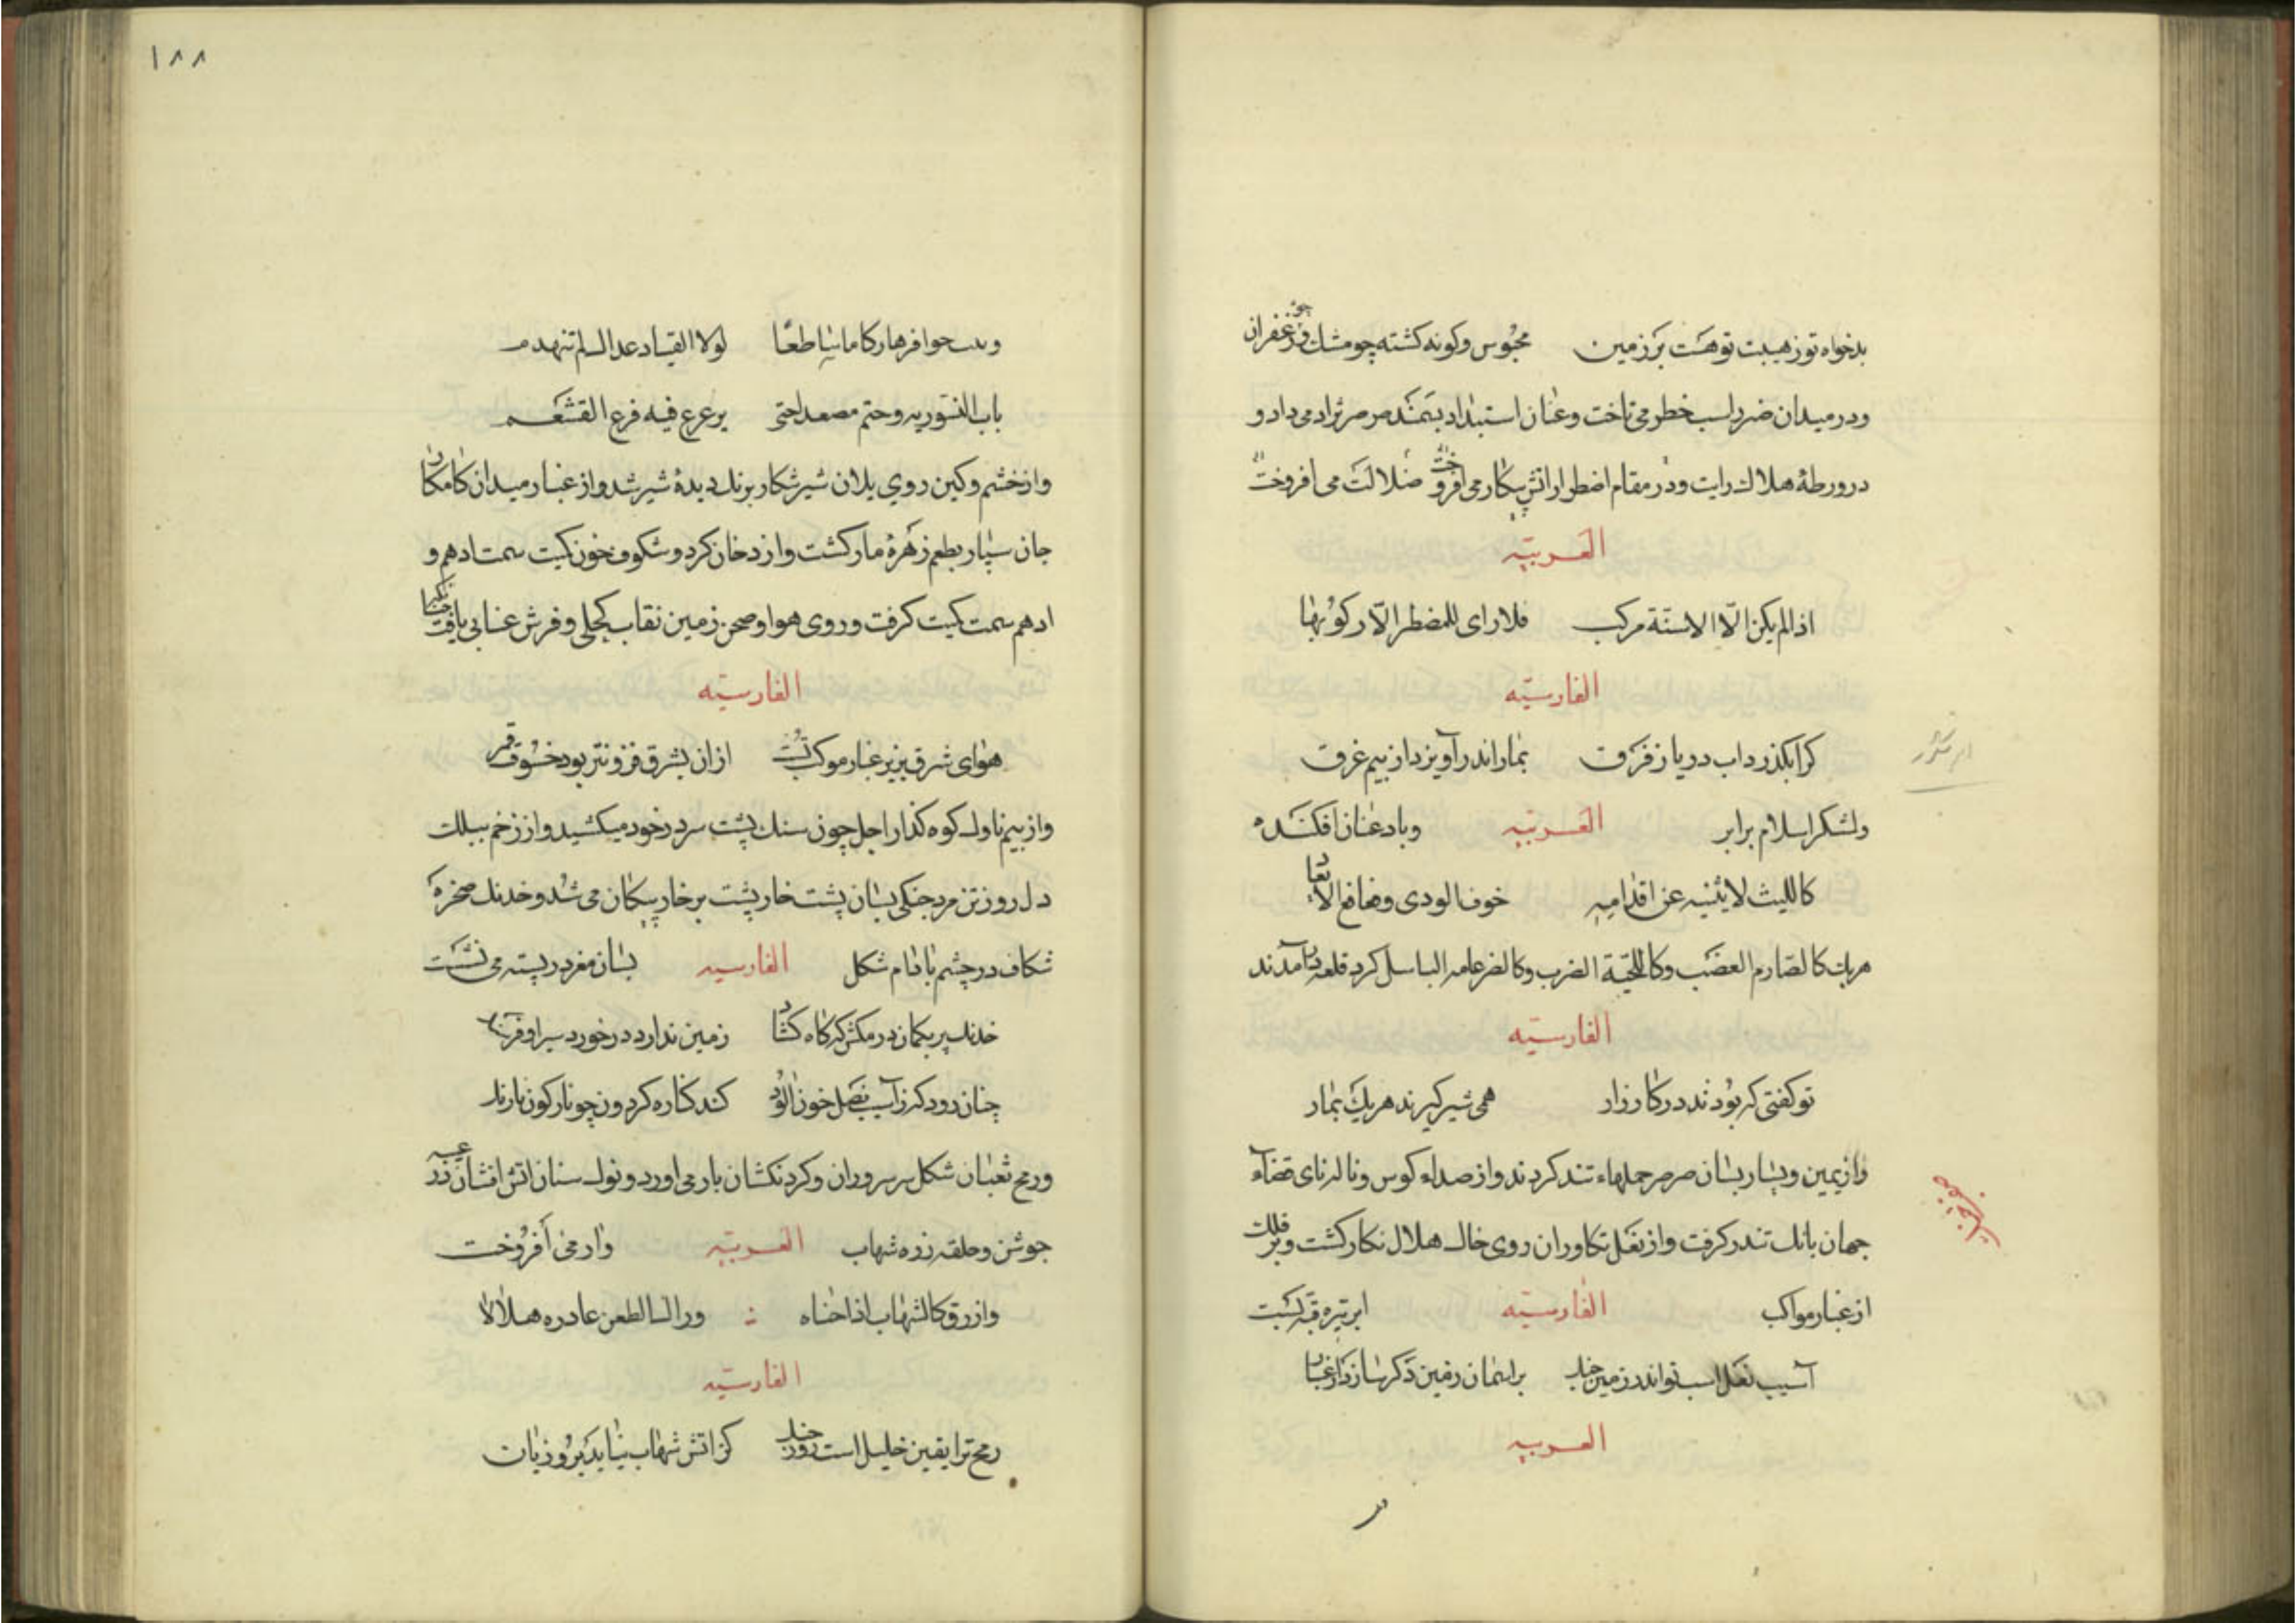 بدخواه تو ز هیبت تو هست بر زمین محبوس و کونه کشته چو مشک و زعفران
و در میدان ضرد اسب خطر می تاخت و عنان استبداد بتمند صرصر نژاد می داد و
در ورطهٔ هلاک رایت و در مقام اضطرار اتش پیکار می افروخت ضلالت می افروخت
العربیه
اذا لم یکن الّا الاسنة مرکب فلا رای للمضطر الّا رکوبها
الفارسیّه
کرا بکذرد اب دریا ز فرق بمار اندر آویزد از بیم غرق
و لشکر اسلام برابر العربیه و باد عنان افکنده
کاللیث لا یثنیه عن اقدامه خوف الودی و قعاقع الایعاد
هریک کالصارم العضب و کالحیّة الضرب و کالضرغامه الباسل کرد قلعه در آمدند
الفارسیّه
تو کفتی که بودند در کارزار همی شیر کیرند هریک بمار
و از یمین و یسار بسان صرصر حملهاء تند کردند و از صداء کوس و ناله نای قضاء
جهان بانک تندر کرفت و از نعل تکاوران روی خاک هلال نکار کشت و بر فلک
از غبار مواکب الفارسیّه ابر تیره قبه بست
آسیب نعل اسب تو اندر زمین جنک بر اسمان زمین دکر سازد از غبار
العربیه
۱۸۸
حوافرها رکاما ساطعا لولا القیاد
باب النسور به وحتم مصعدا حتی یرعرع فیه فرع القشعم
و از خشم و کین روی یلان شیر شکار برنک دیدهٔ شیر شد و از غبار میدان کام کار
جان سپار بطعم زهرهٔ مار کشت و از دخان کرد و شکوف خون کمیت سمت ادهم و
ادهم سمت کمیت کرفت و روی هوا و صحن زمین نقاب کحلی و فرش عنابی یافت
الفارسیّه
هوای شرق بزیر غبار موکب تست از ان بشرق فزونتر بود خسوف قمر
و از بیم ناوک کوه کذار اجل چون سنک پشت سر در خود میکشید و از زخم بیلک
دل روز تن مرد جنکی بسان پشت خارپشت بر خار پیکان می شد و خدنک صخره
شکاف در چشم بادام شکل الفارسیه بسان مغز در پسته می نشست
خدنک پر بکمان در مکش که کاه کشاد زمین ندارد در خورد سیر او
چنان رود که ز آسیب نصل خون الود کند کناره کردون چو نار کون
و رمح ثعبان شکل سر سروران و کردنکشان بار می اورد و نوک سنان اتش افشان در عیبه
جوشن و حلقه زره شهاب العربیه وار می افروخت
و ازرق کالشهاب اذا اطعن هلالا
الفارسیّه
رمح ترا یقین خلیل است روز جنک کز اتش شهاب نیابد بروز یان